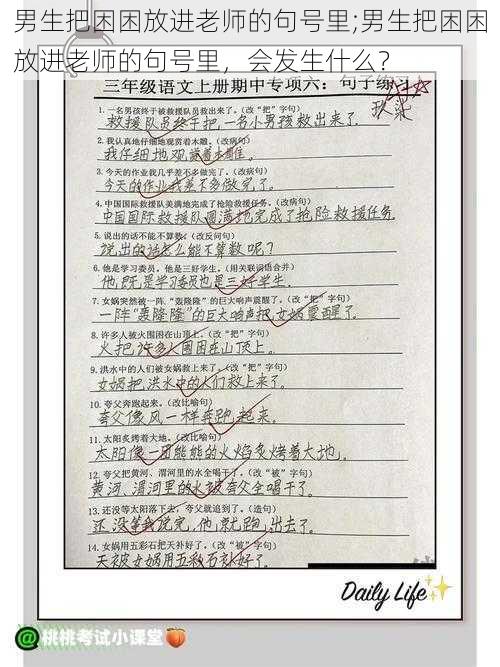 男生把困困放进老师的句号里;男生把困困
放进老师的句号里，会发生什么?
三年级语文上册期中专项六：句子练习
1.一名男孩终于被救援队员救出来了。(改“把”字句)
救援队员终于把一名小男孩救出来了.
2.我认真地仔细地观赏着木雕。(改病句)
我仔细地观赏着木雕.
3.今天的作业我几乎差不多做完了。(改病句)
今天的作业我差不多做完了。
4.中国国际救援队美满地完成了抢险救援任务。(改病句)
中国国际救援队圆满地完成了抢险救援任务.
5.说出的话不能不算数。(改反问句)
说出的话怎么能不算数呢?
6.他是学习委员。他是三好学生。(用关联词语合并)
他既是学习委员也是三好学生.
7.女娲突然被一阵“轰隆隆”的巨大响声震醒了。(改“把”字句)
一阵“轰隆隆”的巨大响声把女娲震醒了.
8.许多人被火围困在山顶上。(改“把”字句)
火把许多人围困在山顶上.
9.洪水中的人们被女娲救上来了。(改“把”字句)
女娲把洪水中的人们救上来了.
10.夸父奔跑起来。(改比喻句)
夸父像风一样奔跑起来.
11.太阳炙烤着大地。(改比喻句)
太阳像一团熊熊的火焰炙烤着大地.
12.夸父把黄河、渭河里的水全喝干了。(改“被”字句)
黄河、渭河里的水被夸父全喝干了.
13.还没等太阳落下去，夸父就追到了。(造句)
还没等我说完,他就跑出去了.
14.女娲用五彩石把天补好了。(改“被”字句)
天被女娲用五彩石补好了.
Daily Life
@桃桃考试小课堂